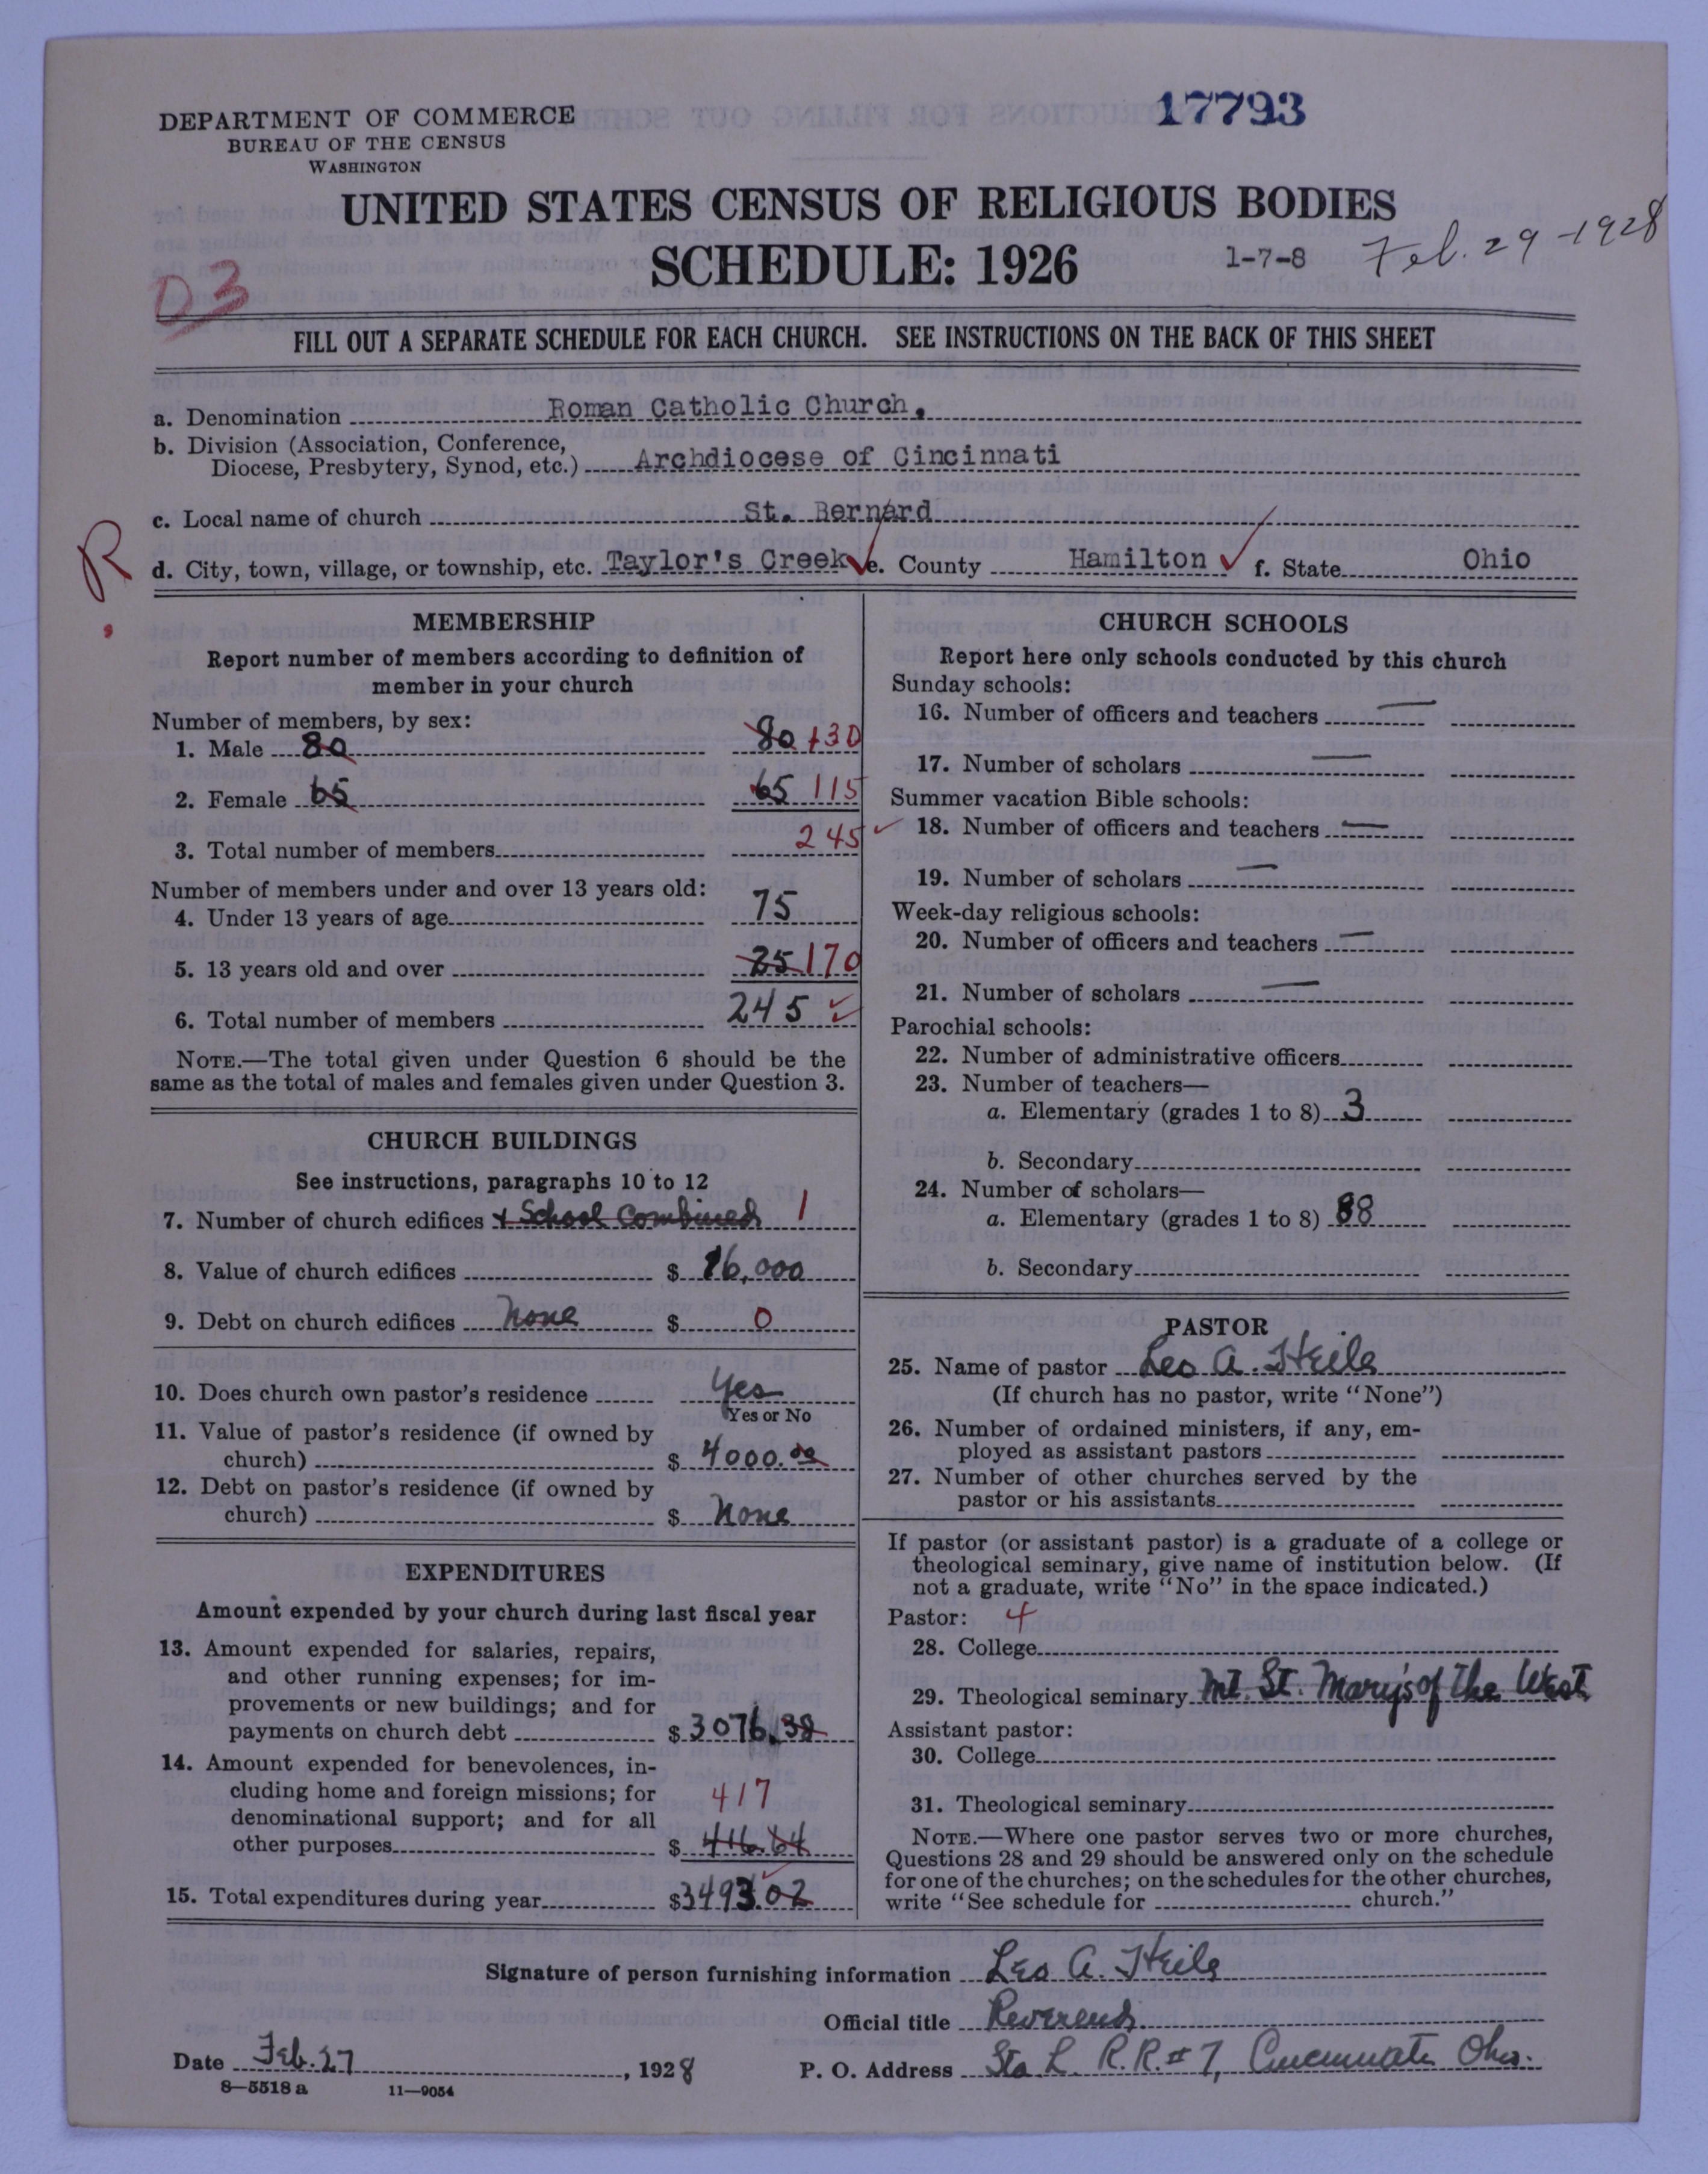 17793
DEPARTMENT OF COMMERCE
BUREAU OF THE CENSUS
WASHINGTON
UNITED STATES CENSUS OF RELIGIOUS BODIES
SCHEDULE: 1926
1-7-8 Feb. 29-1928
D3
FILL OUT A SEPARATE SCHEDULE FOR EACH CHURCH. SEE INSTRUCTIONS ON THE BACK OF THIS SHEET
a. Denomination Roman Catholic Church.
b. Division (Association, Conference,
Diocese, Presbytery, Synod, etc.) Archdiocese of Cincinnati
c. Local name of church St. Bernard
R.
d. City, town, village, or township, etc. Taylor's Creek e. County Hamilton f. State Ohio
MEMBERSHIP
Report number of members according to definition of
member in your church
Number of members, by sex:
1. Male 80 80 130
2. Female 65 65 115
3. Total number of members 245
Number of members under and over 13 years old:
4. Under 13 years of age 75
5. 13 years old and over 25 170
6. Total number of members 245
NOTE.—The total given under Question 6 should be the
same as the total of males and females given under Question 3.
CHURCH BUILDINGS
See instructions, paragraphs 10 to 12
7. Number of church edifices + School Combined 1
8. Value of church edifices $ 16,000
9. Debt on church edifices None $ 0
10. Does church own pastor's residence Yes
Yes or No
11. Value of pastor's residence (if owned by
church) $ 4000.00
12. Debt on pastor's residence (if owned by
church) $ None
EXPENDITURES
Amount expended by your church during last fiscal year
13. Amount expended for salaries, repairs,
and other running expenses; for im-
provements or new buildings; and for
payments on church debt $ 3076.38
14. Amount expended for benevolences, in-
cluding home and foreign missions; for
denominational support; and for all
417
other purposes $ 416.64
15. Total expenditures during year $ 3493.02
CHURCH SCHOOLS
Report here only schools conducted by this church
Sunday schools:
16. Number of officers and teachers —
17. Number of scholars —
Summer vacation Bible schools:
18. Number of officers and teachers —
19. Number of scholars —
Week-day religious schools:
20. Number of officers and teachers —
21. Number of scholars —
Parochial schools:
22. Number of administrative officers
23. Number of teachers—
a. Elementary (grades 1 to 8) 3
b. Secondary
24. Number of scholars—
a. Elementary (grades 1 to 8) 88
b. Secondary
PASTOR
25. Name of pastor Leo A. Heile
(If church has no pastor, write "None")
26. Number of ordained ministers, if any, em-
ployed as assistant pastors
27. Number of other churches served by the
pastor or his assistants
If pastor (or assistant pastor) is a graduate of a college or
theological seminary, give name of institution below. (If
not a graduate, write "No" in the space indicated.)
Pastor: 4
28. College
29. Theological seminary Mt. St. Mary's of The West
Assistant pastor:
30. College
31. Theological seminary
NOTE.—Where one pastor serves two or more churches,
Questions 28 and 29 should be answered only on the schedule
for one of the churches; on the schedules for the other churches,
write "See schedule for church."
Signature of person furnishing information Leo A. Heile
Official title Reverend
Date Feb. 27, 1928 P. O. Address Sta L R.R.#7, Cincinnati Ohio.
8—5518 a 11—9054